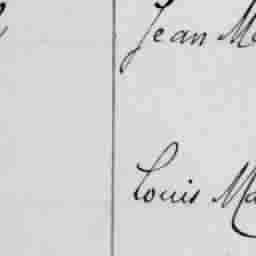 Jean M
Louis Ma